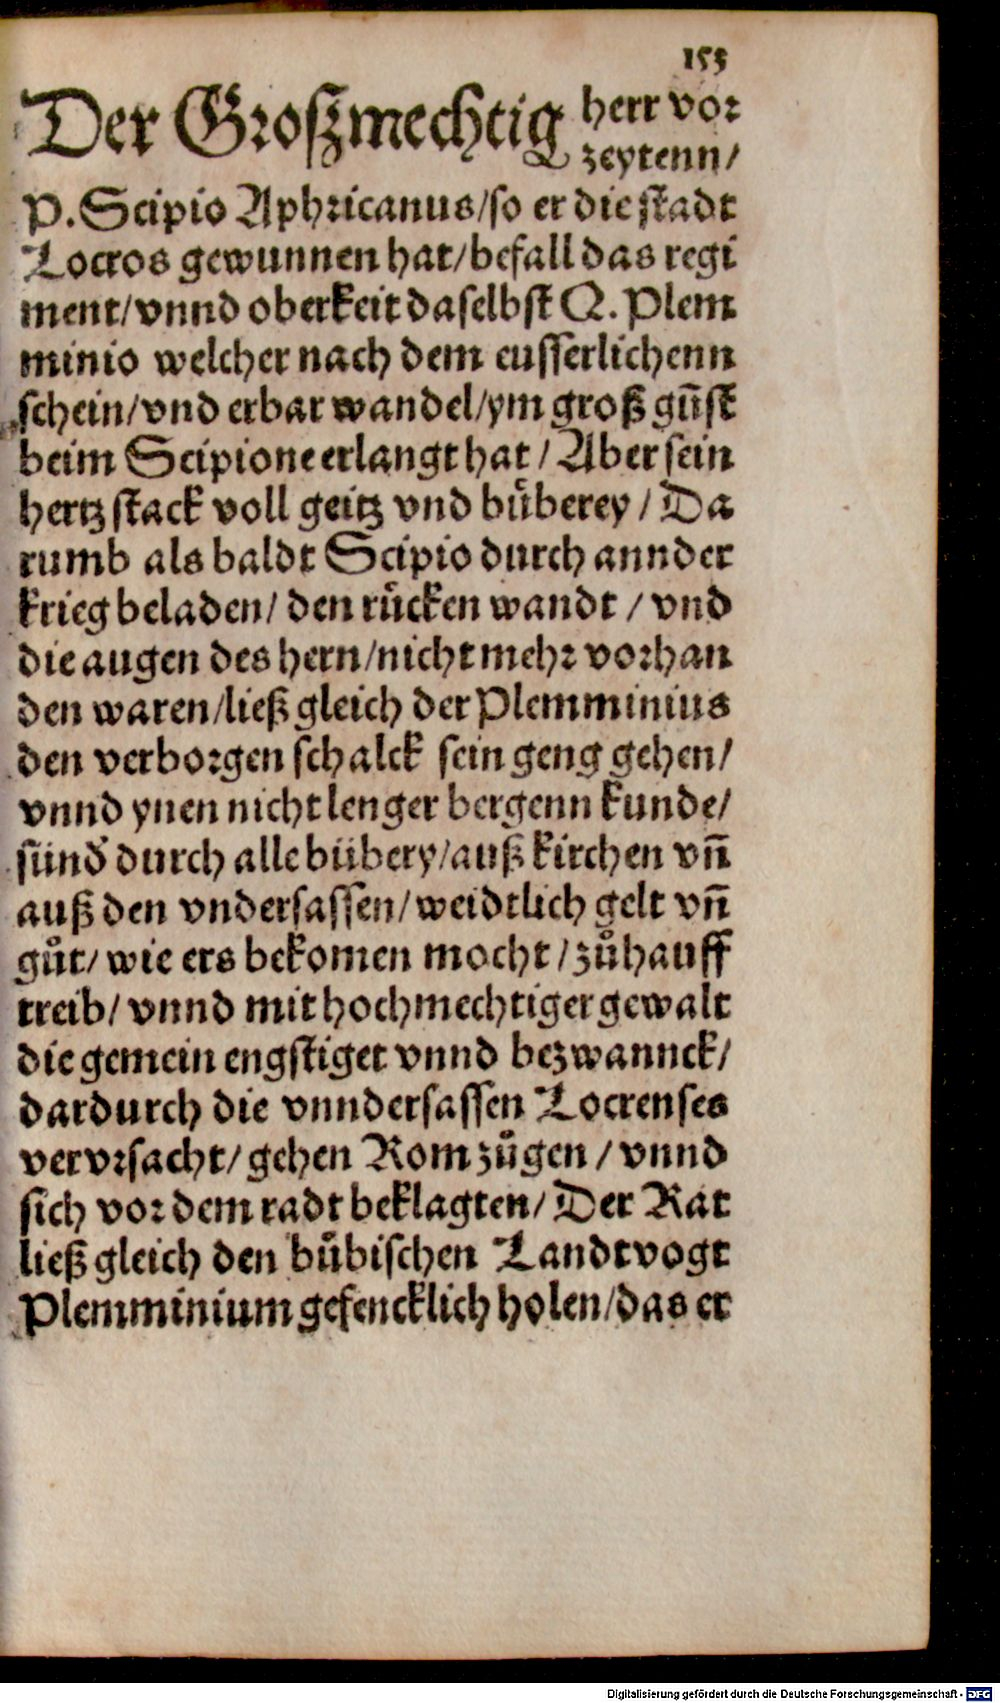 153
Der Groszmechtig herr vor
zeytenn/
P. Scipio Aphricanus/so er die stadt
Locros gewunnen hat/befall das regi
ment/vnnd oberkeit daselbst Q. Plem
minio welcher nach dem eusserlichenn
schein/vnd erbar wandel/ym groß gūst
beim Scipione erlangt hat/Aber sein
hertz stack voll geitz vnd bůberey/Da
rumb als baldt Scipio durch annder
krieg beladen/den růcken wandt/vnd
die augen des hern/nicht mehr vorhan
den waren/ließ gleich der Plemminius
den verborgen schalck sein geng gehen/
vnnd ynen nicht lenger bergenn kunde/
sund durch alle bübery/auß kirchen vn̄
auß den vndersassen/weidtlich gelt vn̄
gůt/wie ers bekomen mocht/zůhauff
treib/vnnd mit hochmechtiger gewalt
die gemein engstiget vnnd bezwannck/
dardurch die vnndersassen Locrenses
vervrsacht/gehen Rom zůgen/vnnd
sich vor dem radt beklagten/Der Rat
ließ gleich den bůbischen Landtvogt
Plemminium gefencklich holen/das er
Digitalisierung gefördert durch die Deutsche Forschungsgemeinschaft - DFG